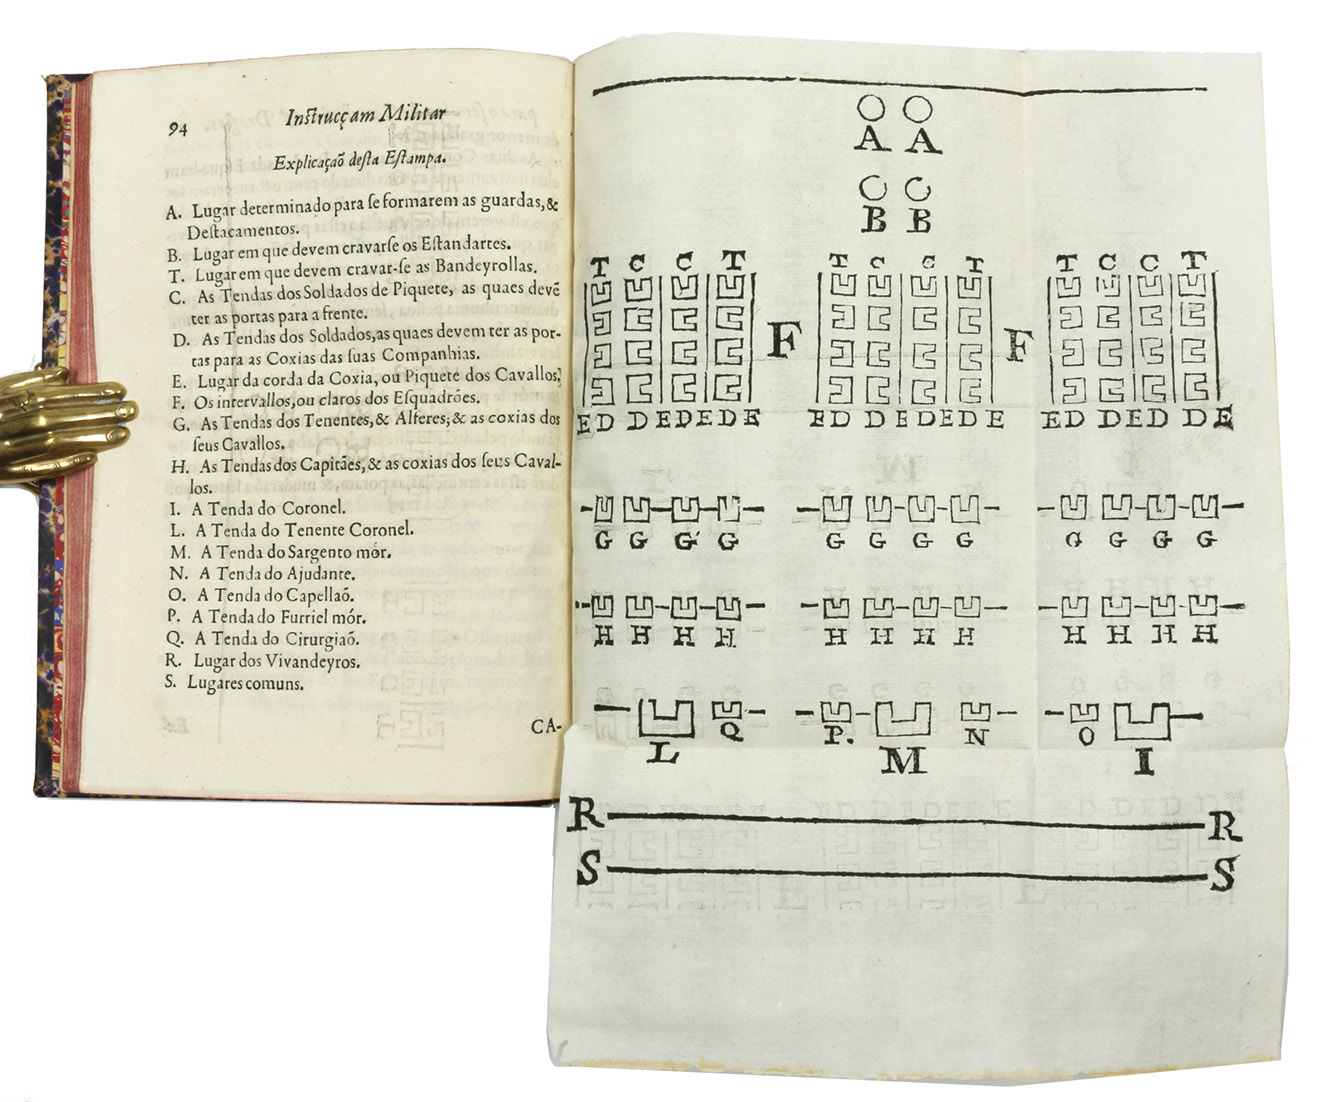 94
Instrucçam Militar
Explicaçaõ desta Estampa.
A. Lugar determinado para se formarem as guardas, &
Destacamentos.
B. Lugar em que devem cravarse os Estandartes.
T. Lugar em que devem cravar-se as Bandeyrollas.
C. As Tendas dos Soldados de Piquete, as quaes devẽ
ter as portas para a frente.
D. As Tendas dos Soldados, as quaes devem ter as por-
tas para as Coxias das suas Companhias.
E. Lugar da corda da Coxia, ou Piquete dos Cavallos.
F. Os intervallos, ou claros dos Esquadrões.
G. As Tendas dos Tenentes, & Alferes; & as coxias dos
seus Cavallos.
H. As Tendas dos Capitães, & as coxias dos seus Caval-
los.
I. A Tenda do Coronel.
L. A Tenda do Tenente Coronel.
M. A Tenda do Sargento mór.
N. A Tenda do Ajudante.
O. A Tenda do Capellaõ.
P. A Tenda do Furriel mór.
Q. A Tenda do Cirurgiaõ.
R. Lugar dos Vivandeyros.
S. Lugares comuns.
CA-
A A
B B
T C C T T C C T T C C T
F F
E D D E D E D E E D D E D E D E E D D E D D E
G G G G G G G G G G G G
H H H H H H H H H H H H
L Q P. M N O I
R R
S S